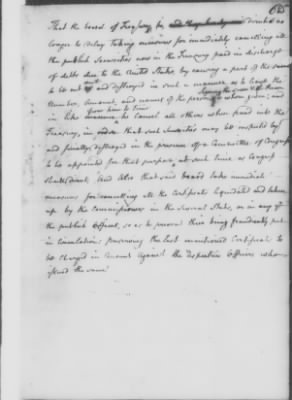 65
That the board of Treasury be and they hereby are directed no
longer to delay taking measures for immediately cancelling all
the publick Securities now in the Treasury paid in discharge
of debts due to the United States, by causing a part of the same
to be cut out and destroyed in such a manner as to leave the
Number, Amount, and names of the persons to whom given; and
from time to time
in like manner to cancel all others when paid into the
Treasury, in order that such Securities may be inspected by
and finally destroyed in the presence of a Committee of Congress
to be appointed for that purpose at such time as Congress
shall direct. And also that said board take immediate
measures for cancelling all the Certificates liquidated and taken
up by the Commissioners in the several States, or in any of
the publick Offices, so as to prevent their being fraudulently put
in circulation: preserving the last mentioned Certificates to
be charged in Account against the respective Officers who
issued the same